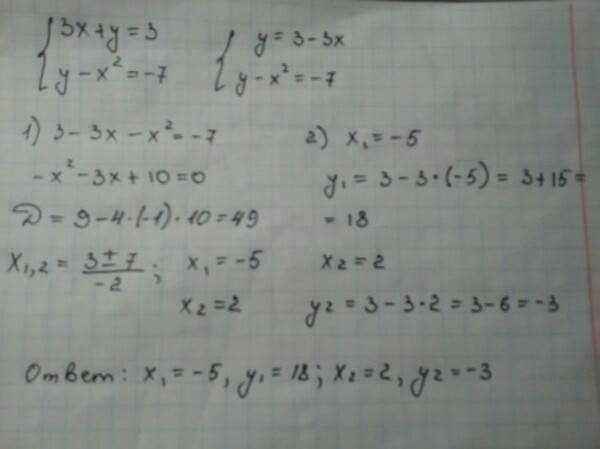 { 3x+y=3
y-x²=-7
{ y=3-3x
y-x²=-7
1) 3-3x-x²=-7
-x²-3x+10=0
D=9-4·(-1)·10=49
x₁,₂ = (3±7)/(-2); x₁=-5
x₂=2
2) x₁=-5
y₁=3-3·(-5)=3+15=
=18
x₂=2
y₂=3-3·2=3-6=-3
Ответ: x₁=-5, y₁=18; x₂=2, y₂=-3